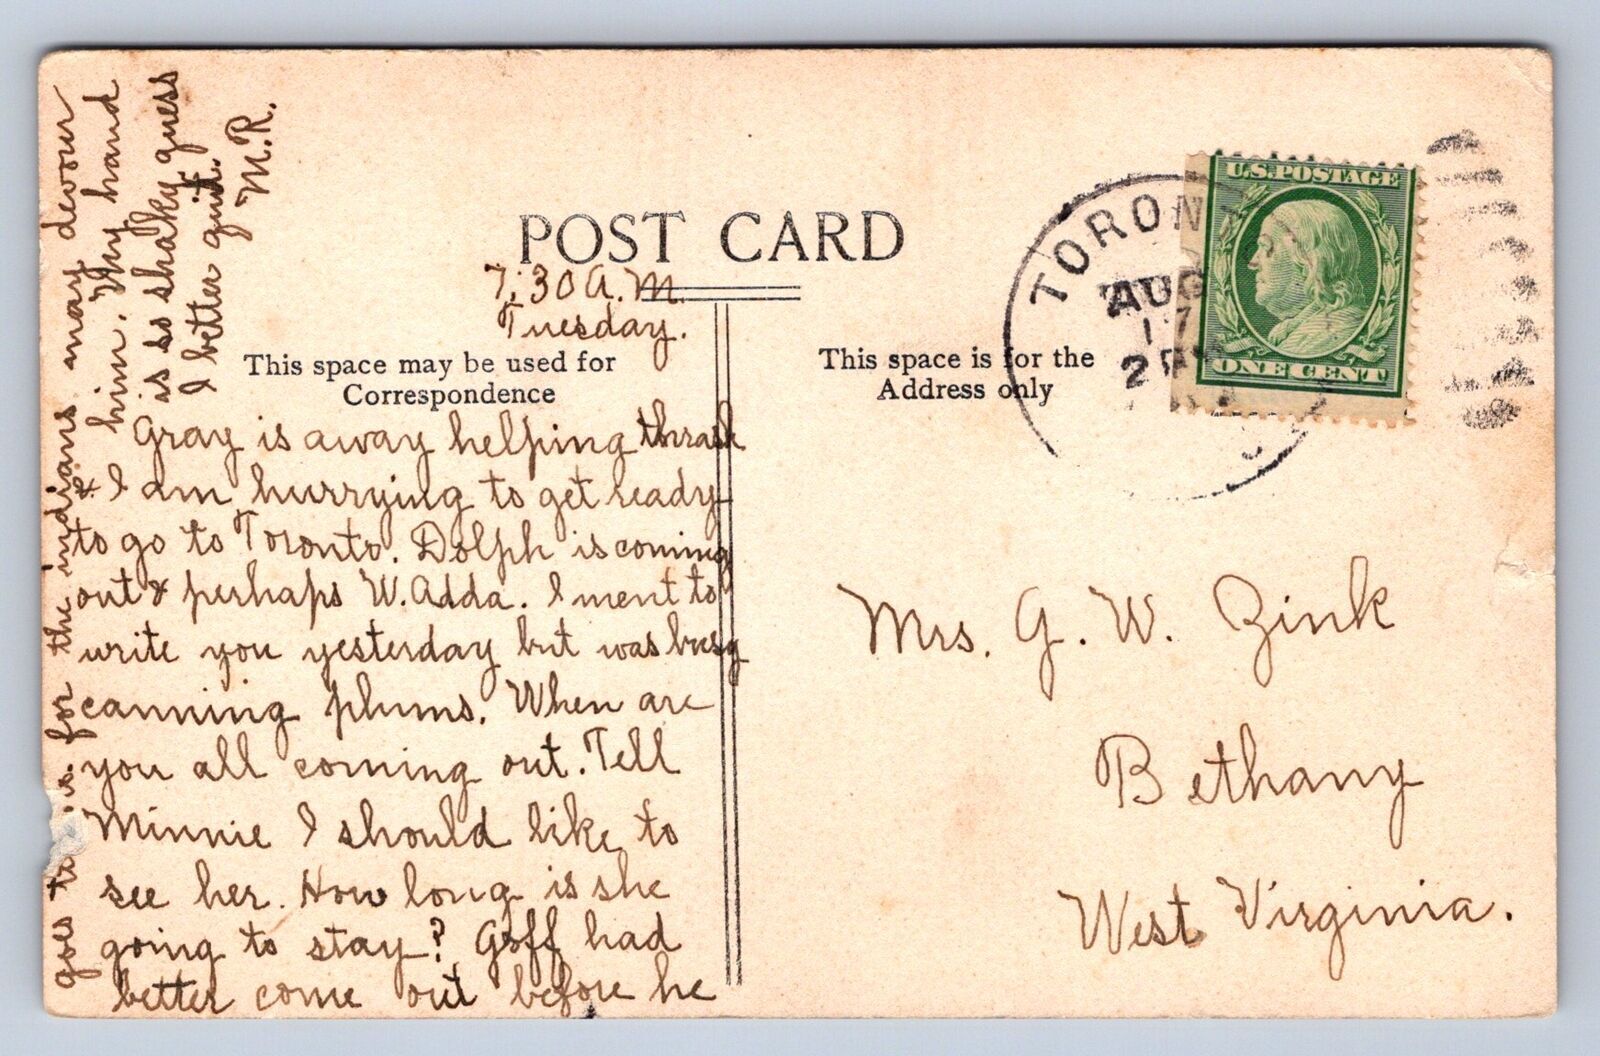 POST CARD
7:30 A.M.
Tuesday.
This space may be used for
Correspondence
Gray is away helping thrash
& I am hurrying to get ready
to go to Toronto. Dolph is coming
out & perhaps W. Adda. I ment to
write you yesterday but was busy
canning plums. When are
you all coming out. Tell
Minnie I should like to
see her. How long is she
going to stay? Goff had
better come out before he
goes to for the indians may devour
him. My hand
is so shaky guess
I better quit.
M.R.
This space is for the
Address only
TORON
AUG
17
2 P
U.S. POSTAGE
ONE CENT
Mrs. G. W. Zink
Bethany
West Virginia.